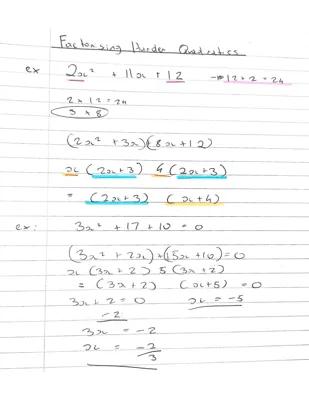 Factorising Harder Quadratics
ex 2x² + 11x + 12 → 12 × 2 = 24
2 × 12 = 24
3 × 8
(2x² + 3x) + (8x + 12)
x (2x + 3) 4 (2x + 3)
= (2x + 3) (x + 4)
ex: 3x² + 17 + 10 = 0
(3x² + 2x) + (5x + 10) = 0
x (3x + 2) 5 (3x + 2)
= (3x + 2) (x + 5) = 0
3x + 2 = 0 x = -5
-2
3x = -2
x = -2/3